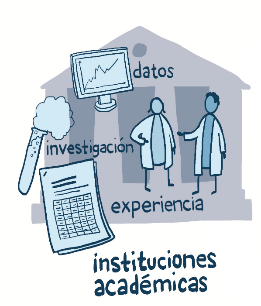 datos
investigación
experiencia
instituciones
académicas